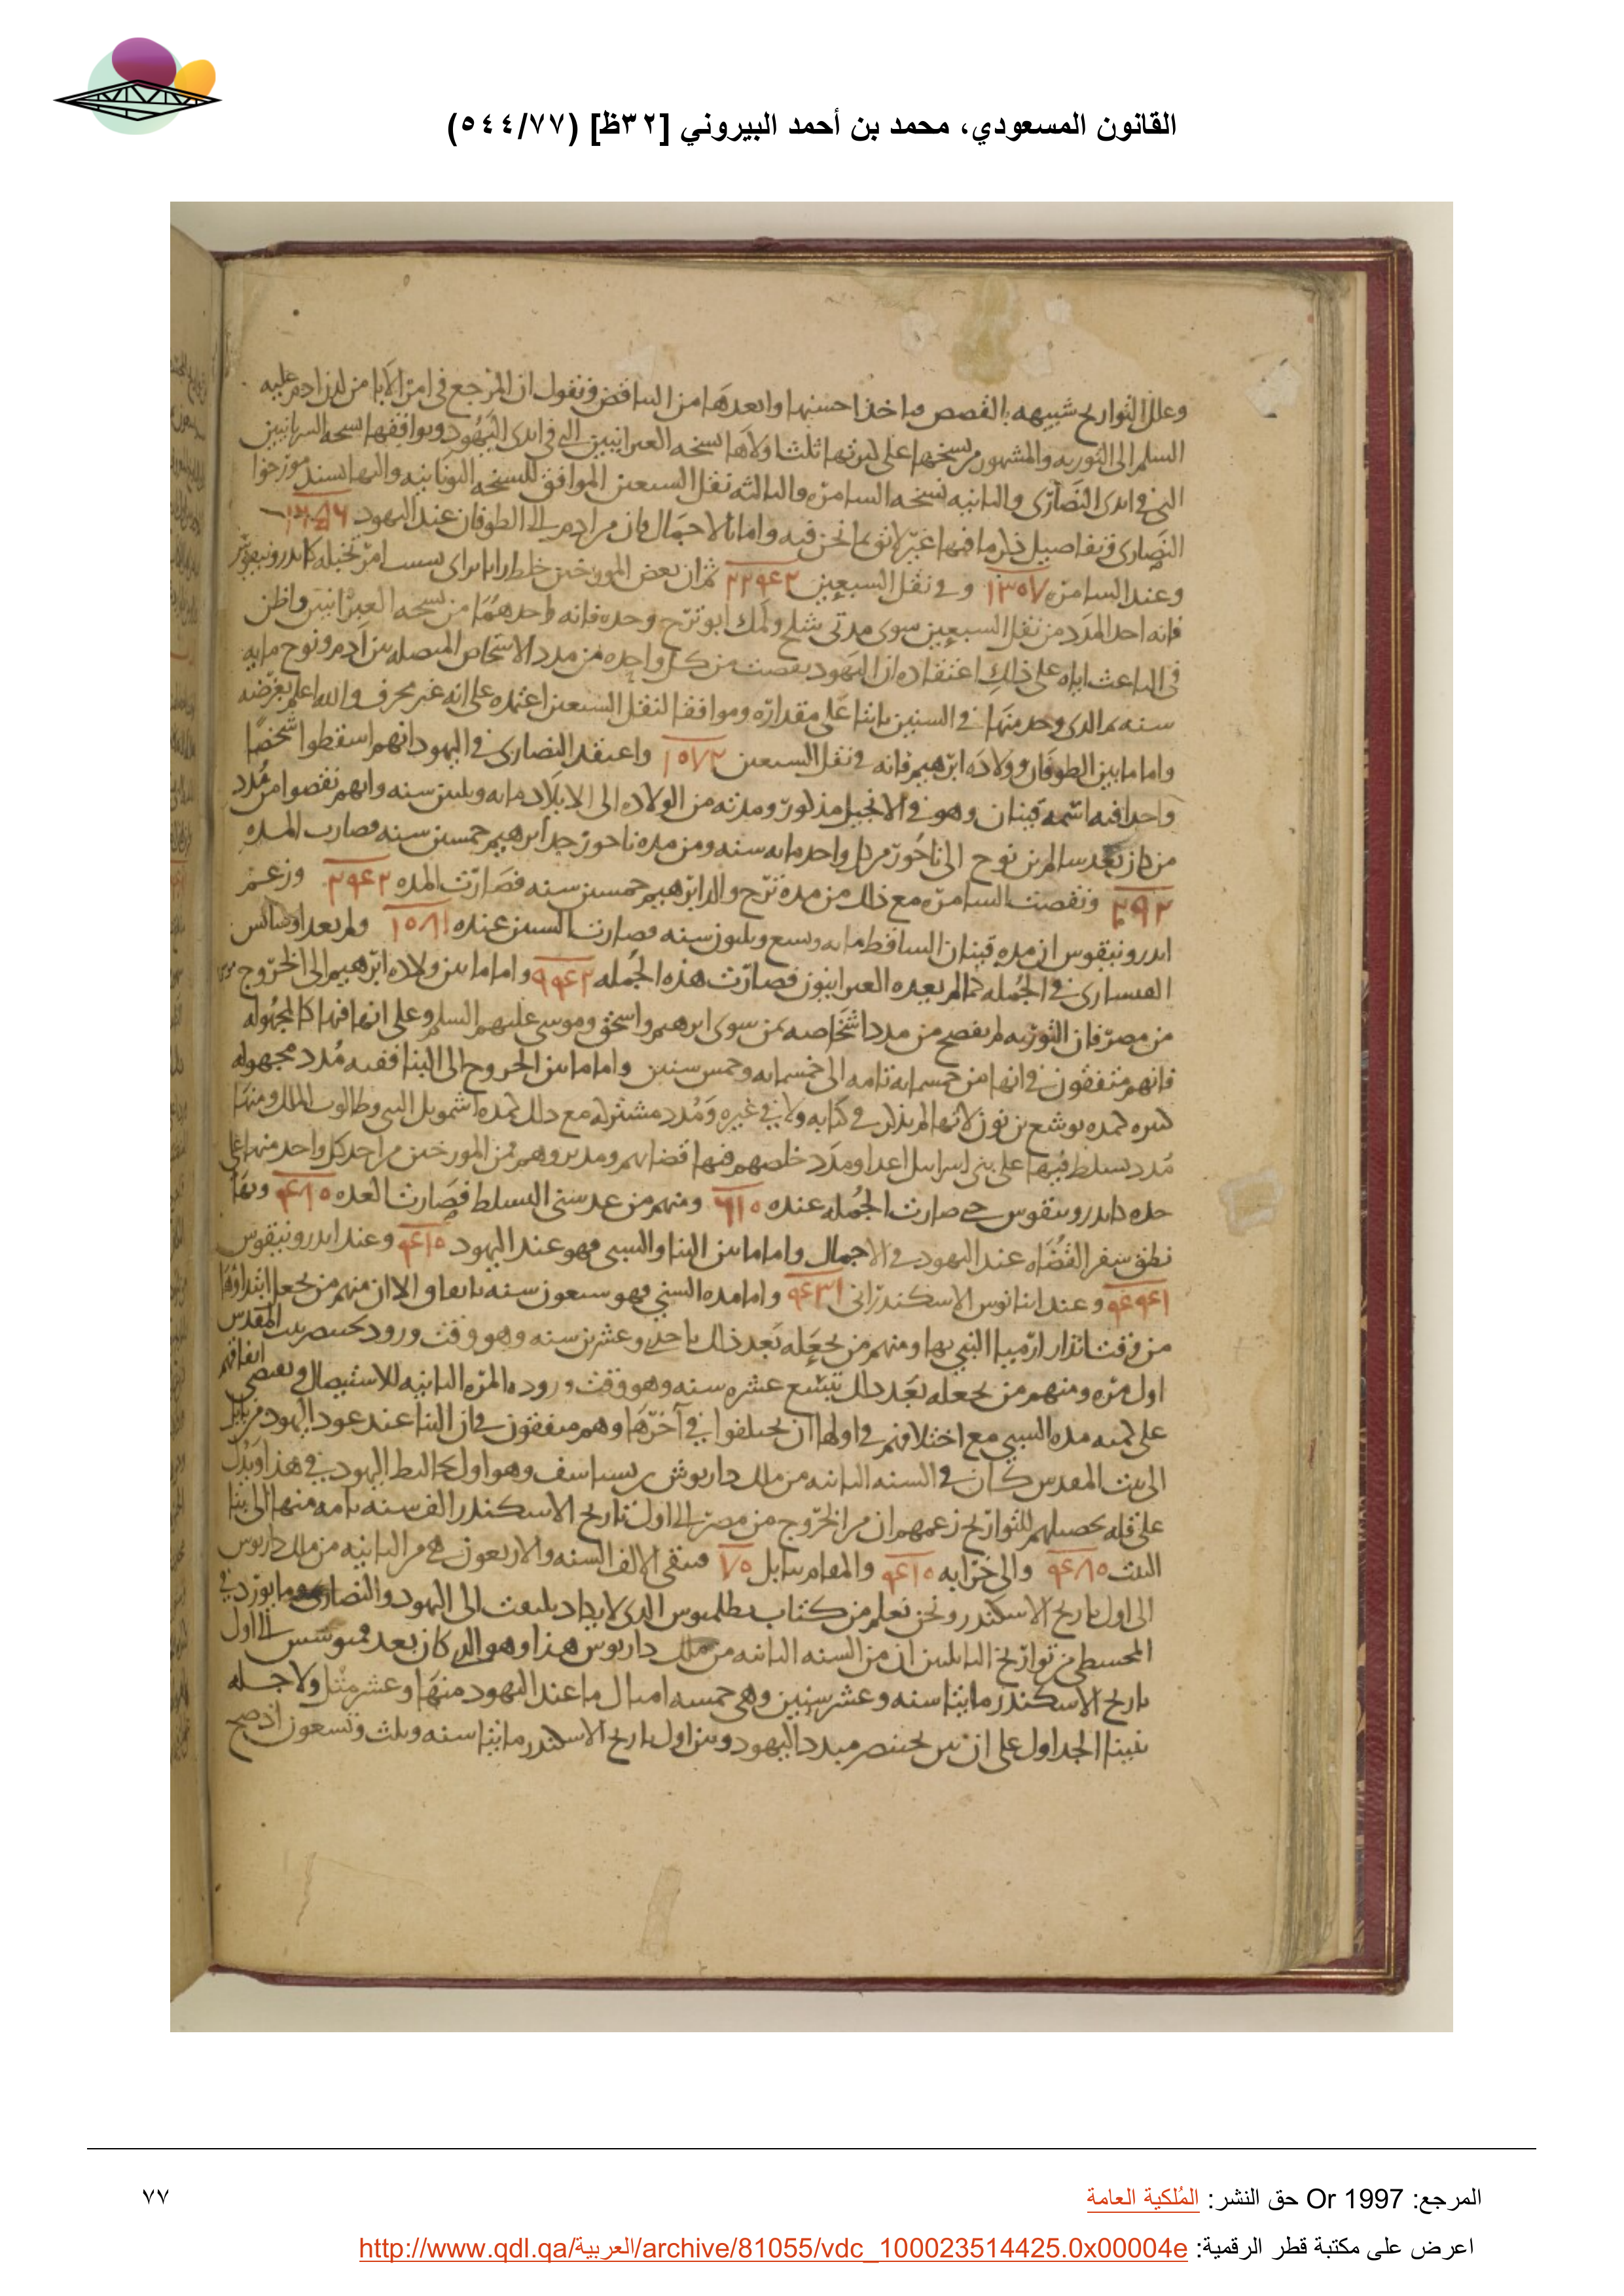 القانون المسعودي، محمد بن أحمد البيروني [٣٢ظ] (٥٤٤/٧٧)
وعلل التواريخ شبيهه بالقصص ماخذا احسنها وابعدها من التناقض فنقول ان المرجع في امر الابا من لدن ادم عليه
السلم الى التوريه والمشهور من نسخها على كثرتها ثلث اولاها نسخه العبرانيين التى في ايدى اليهود ويوافقها نسخه السريانيين
التى في ايدى النصارى والثانيه نسخه السامره والثالثه نقل السبعين الموافق للنسخه اليونانيه واليها يستند مورخوا
النصارى وتفاصيل ذلك وما فيها غير لائق بما نحن فيه واما بالاجمال فان من ادم الى الطوفان عند اليهود
وعند السامره ١٣٥٧ وفي نقل السبعين ٢٢٩٤٢ ثم ان بعض المورخين خلط رايا براى بسبب امر تخيله كاندرونيقوس
فانه اخذ المدد من نقل السبعين سوى مدتى متوشلح ولمك ابو نوح وحده فانه اخذهما من نسخه العبرانيين واظن
في الباعث اياه على ذلك اعتقاده ان اليهود نقصت من كل واحده من مدد الاشخاص المتصله بين ادم ونوح مايه
سنه فالذى وجد منها في السنين باقيا على مقداره وموافقا لنقل السبعين اعتمده على انه غير محرف والله اعلم بغرضه
واما ما بين الطوفان وولاده ابرهيم فانه في نقل السبعين ١٥٧٢ واعتقد النصارى في اليهود انهم اسقطوا شخصا
واحدا فيه اسمه قينان وهو في الانجيل مذكور ومدته من الولاده الى الايلاد مايه وثلثين سنه وانهم نقصوا من مدد
من كان بعد سام بن نوح الى ناحور من كل واحد مايه سنه ومن مده ناحور جد ابرهيم خمسين سنه فصارت المده
٢٩٢ ونقصت السامره مع ذلك من مده ترح والد ابرهيم خمسين سنه فصارت المده ٢٩٤٢ وزعم
اندرونيقوس ان مده قينان الساقط مايه وتسع وثلثون سنه فصارت السنين عنده ١٥٨١ ولم يعد
في الجمله كما لم يعده العبرانيون فصارت هذه الجمله ٩٩٤٢ واما ما بين ولاده ابرهيم الى الخروج
من مصر فان التوريه لم يفصح من مدد اشخاصه بمن سوى ابرهيم واسحق وموسى عليهم السلم وعلى انها فيها كالمجهوله
فانهم متفقون في انها من خمسمايه تامه الى خمسمايه وخمس سنين واما ما بين الخروج الى البنا ففيه مدد مجهوله
كثيره كمده يوشع بن نون لانها لم يذكر في كتابه ولا في غيره ومدد مشتركه مع ذلك كمده اشمويل النبى وطالوت الملك ومنها
مدد تسلط فيها على بنى اسرايل اعدا ومدد خلصهم فيها قضاتهم ومدبروهم فمن المورخين من اخذ كل واحد منها على
حده كاندرونيقوس حتى صارت الجمله عنده ٦١٥ ومنهم من عد سنى التسلط فصارت العده ٤٨٥ وبها
نطق سفر القضاه عند اليهود في الاجمال واما ما بين البنا والسبى فهو عند اليهود ٤١٥ وعند اندرونيقوس
وعند انيانوس الاسكندرانى ٤٣١ واما مده السبى فهو سبعون سنه باتفاق الا ان منهم من يجعل ابتداوها
من وقت انذار ارميا النبى بها ومنهم من يجعله بعد ذلك باحدى وعشرين سنه وهو وقت ورود بختنصر بيت المقدس
اول مره ومنهم من يجعله بعد ذلك بتسع عشره سنه وهو وقت وروده المره الثانيه للاستيصال ويقتضى اتفاقهم
على كميه مده السبى مع اختلافهم في اولها ان يختلفوا في آخرها وهم متفقون في ان البنا عند عود اليهود من بابل
الى بيت المقدس كان في السنه الثانيه من ملك داريوش بن بستاسف وهو اول تخاليط اليهود في هذا ويدل
على قله تحصيلهم للتواريخ زعمهم ان من الخروج من مصر الى اول تاريخ الاسكندر الف سنه تامه منها الى بنا
البيت ٤٨٥ والى خرابه ٤١٥ والمقام ببابل ٧٥ فتبقى لالف السنه والاربعون هى من الثانيه من ملك داريوس
الى اول تاريخ الاسكندر ونحن نعلم من كتاب بطلميوس الذى لا يكاد يلتفت الى اليهود والنصارى وما يورد في
المجسطى من تواريخ البابليين ان من السنه الثانيه من ملك داريوس هذا وهو الذى كان بعد قمبوسس الى اول
تاريخ الاسكندر مايتا سنه وعشر سنين وهى خمسه امثال ما عند اليهود منها وعشر مثل ولاجله
بنينا الجداول على ان بين بختنصر مبدد اليهود وبين اول تاريخ الاسكندر مايتا سنه وثلث وتسعون اذ صح
المرجع: Or 1997 حق النشر: المُلكية العامة
٧٧
اعرض على مكتبة قطر الرقمية: http://www.qdl.qa/العربية/archive/81055/vdc_100023514425.0x00004e